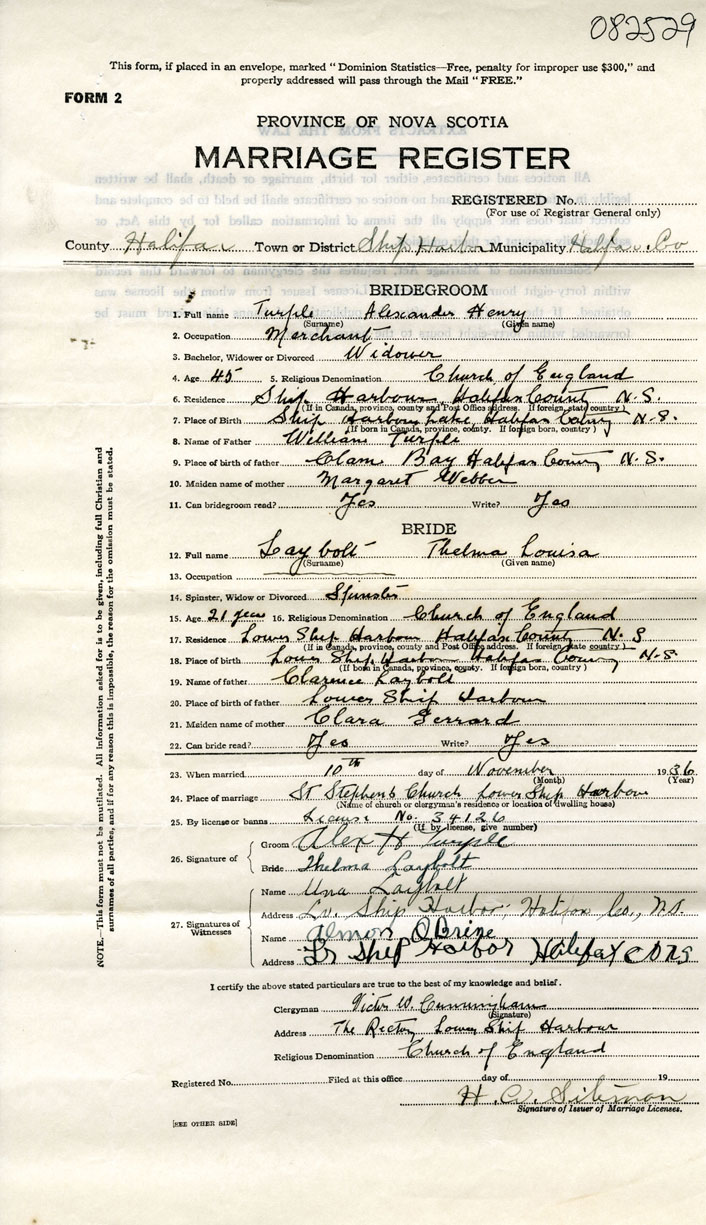 082529
This form, if placed in an envelope, marked "Dominion Statistics—Free, penalty for improper use $300," and
properly addressed will pass through the Mail "FREE."
FORM 2
PROVINCE OF NOVA SCOTIA
MARRIAGE REGISTER
REGISTERED No.
(For use of Registrar General only)
County Halifax Town or District Ship Harbor Municipality Halifax Co
BRIDEGROOM
1. Full name Turple Alexander Henry
(Surname) (Given name)
2. Occupation Merchant
3. Bachelor, Widower or Divorced Widower
4. Age 45 5. Religious Denomination Church of England
6. Residence Ship Harbour Halifax County N.S.
(If in Canada, province, county and Post Office address. If foreign, state country)
7. Place of Birth Ship Harbour Lake, Halifax County N.S.
(If born in Canada, province, county. If foreign born, country)
8. Name of Father William Turple
9. Place of birth of father Clam Bay Halifax County N.S.
10. Maiden name of mother Margaret Webber
11. Can bridegroom read? Yes Write? Yes
BRIDE
12. Full name Laybolt Thelma Louisa
(Surname) (Given name)
13. Occupation
14. Spinster, Widow or Divorced Spinster
15. Age 21 years 16. Religious Denomination Church of England
17. Residence Lower Ship Harbour Halifax County N.S
(If in Canada, province, county and Post Office address. If foreign, state country)
18. Place of birth Lower Ship Harbour Halifax County N.S.
(If born in Canada, province, county. If foreign born, country)
19. Name of father Clarence Laybolt
20. Place of birth of father Lower Ship Harbour
21. Maiden name of mother Clara Gerrard
22. Can bride read? Yes Write? Yes
23. When married 10th day of November 1936
(Month) (Year)
24. Place of marriage St Stephens Church Lower Ship Harbour
(Name of church or clergyman's residence or location of dwelling house)
25. By license or banns License No. 34126
(If by license, give number)
26. Signature of
Groom Alex H Turple
Bride Thelma Laybolt
27. Signatures of Witnesses
Name Una Laybolt
Address Lr. Ship Harbor, Halifax Co., N.S.
Name Almon O'Brine
Address Lr Ship Harbor Halifax Co NS
I certify the above stated particulars are true to the best of my knowledge and belief.
Clergyman Victor W. Cunningham
(Signature)
Address The Rectory Lower Ship Harbour
Religious Denomination Church of England
Registered No. Filed at this office day of 19
H. O.
Signature of Issuer of Marriage Licenses.
[SEE OTHER SIDE]
NOTE.—This form must not be mutilated. All information asked for is to be given, including full Christian and
surnames of all parties, and if for any reason this is impossible, the reason for the omission must be stated.